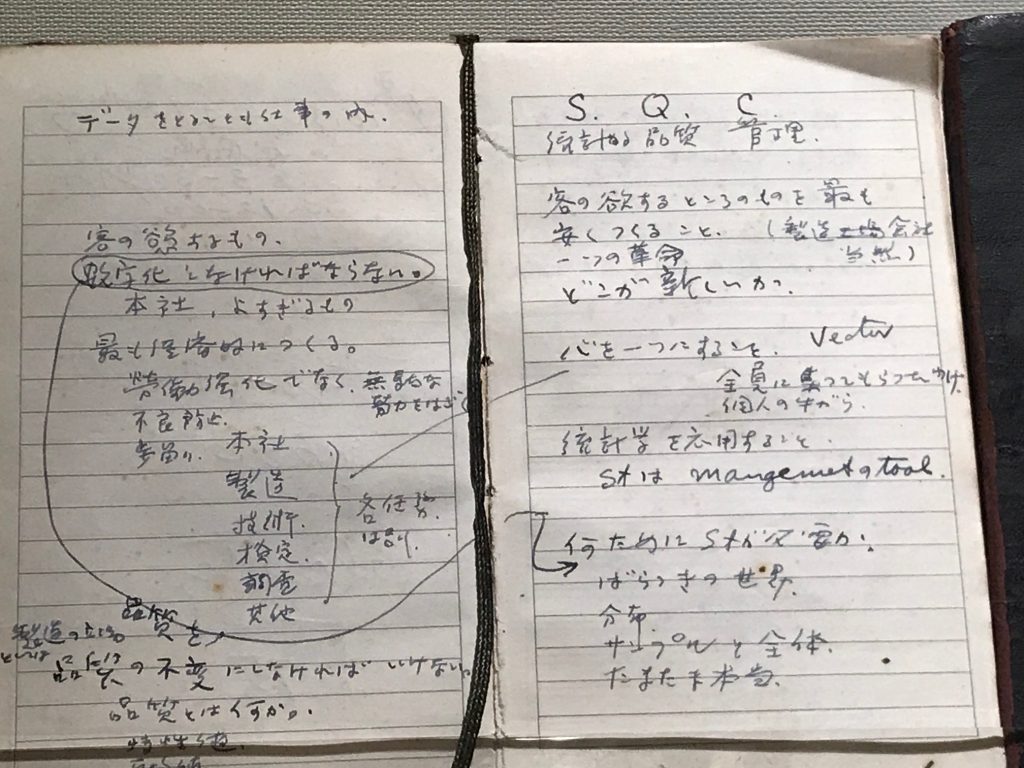 データをとることも仕事の内.
客の欲するもの.
数字化しなければならない。
本社,よすぎるもの
最も経済的につくる。
労働強化でなく. 無駄な
努力をはぶく
不良防止.
歩留り.
本社
製造
技術.
検定.
調査
其他
各任務
は別.
品質
製造の立場
質を
品質の不変にしなければいけない。
品質とは何か。
特性値.
S. Q. C.
統計的 品質 管理.
客の欲するところのものを最も
安くつくること. (製造工場会社
当然)
一つの革命
どこが新しいか.
心を一つにすること. Vector
全員に集ってもらったわけ.
個人の
統計学を応用すること.
Stは mangemetのtool.
何ために Stが必要か.
ばらつきの世界.
分布
サンプルと全体.
たまたま本当.